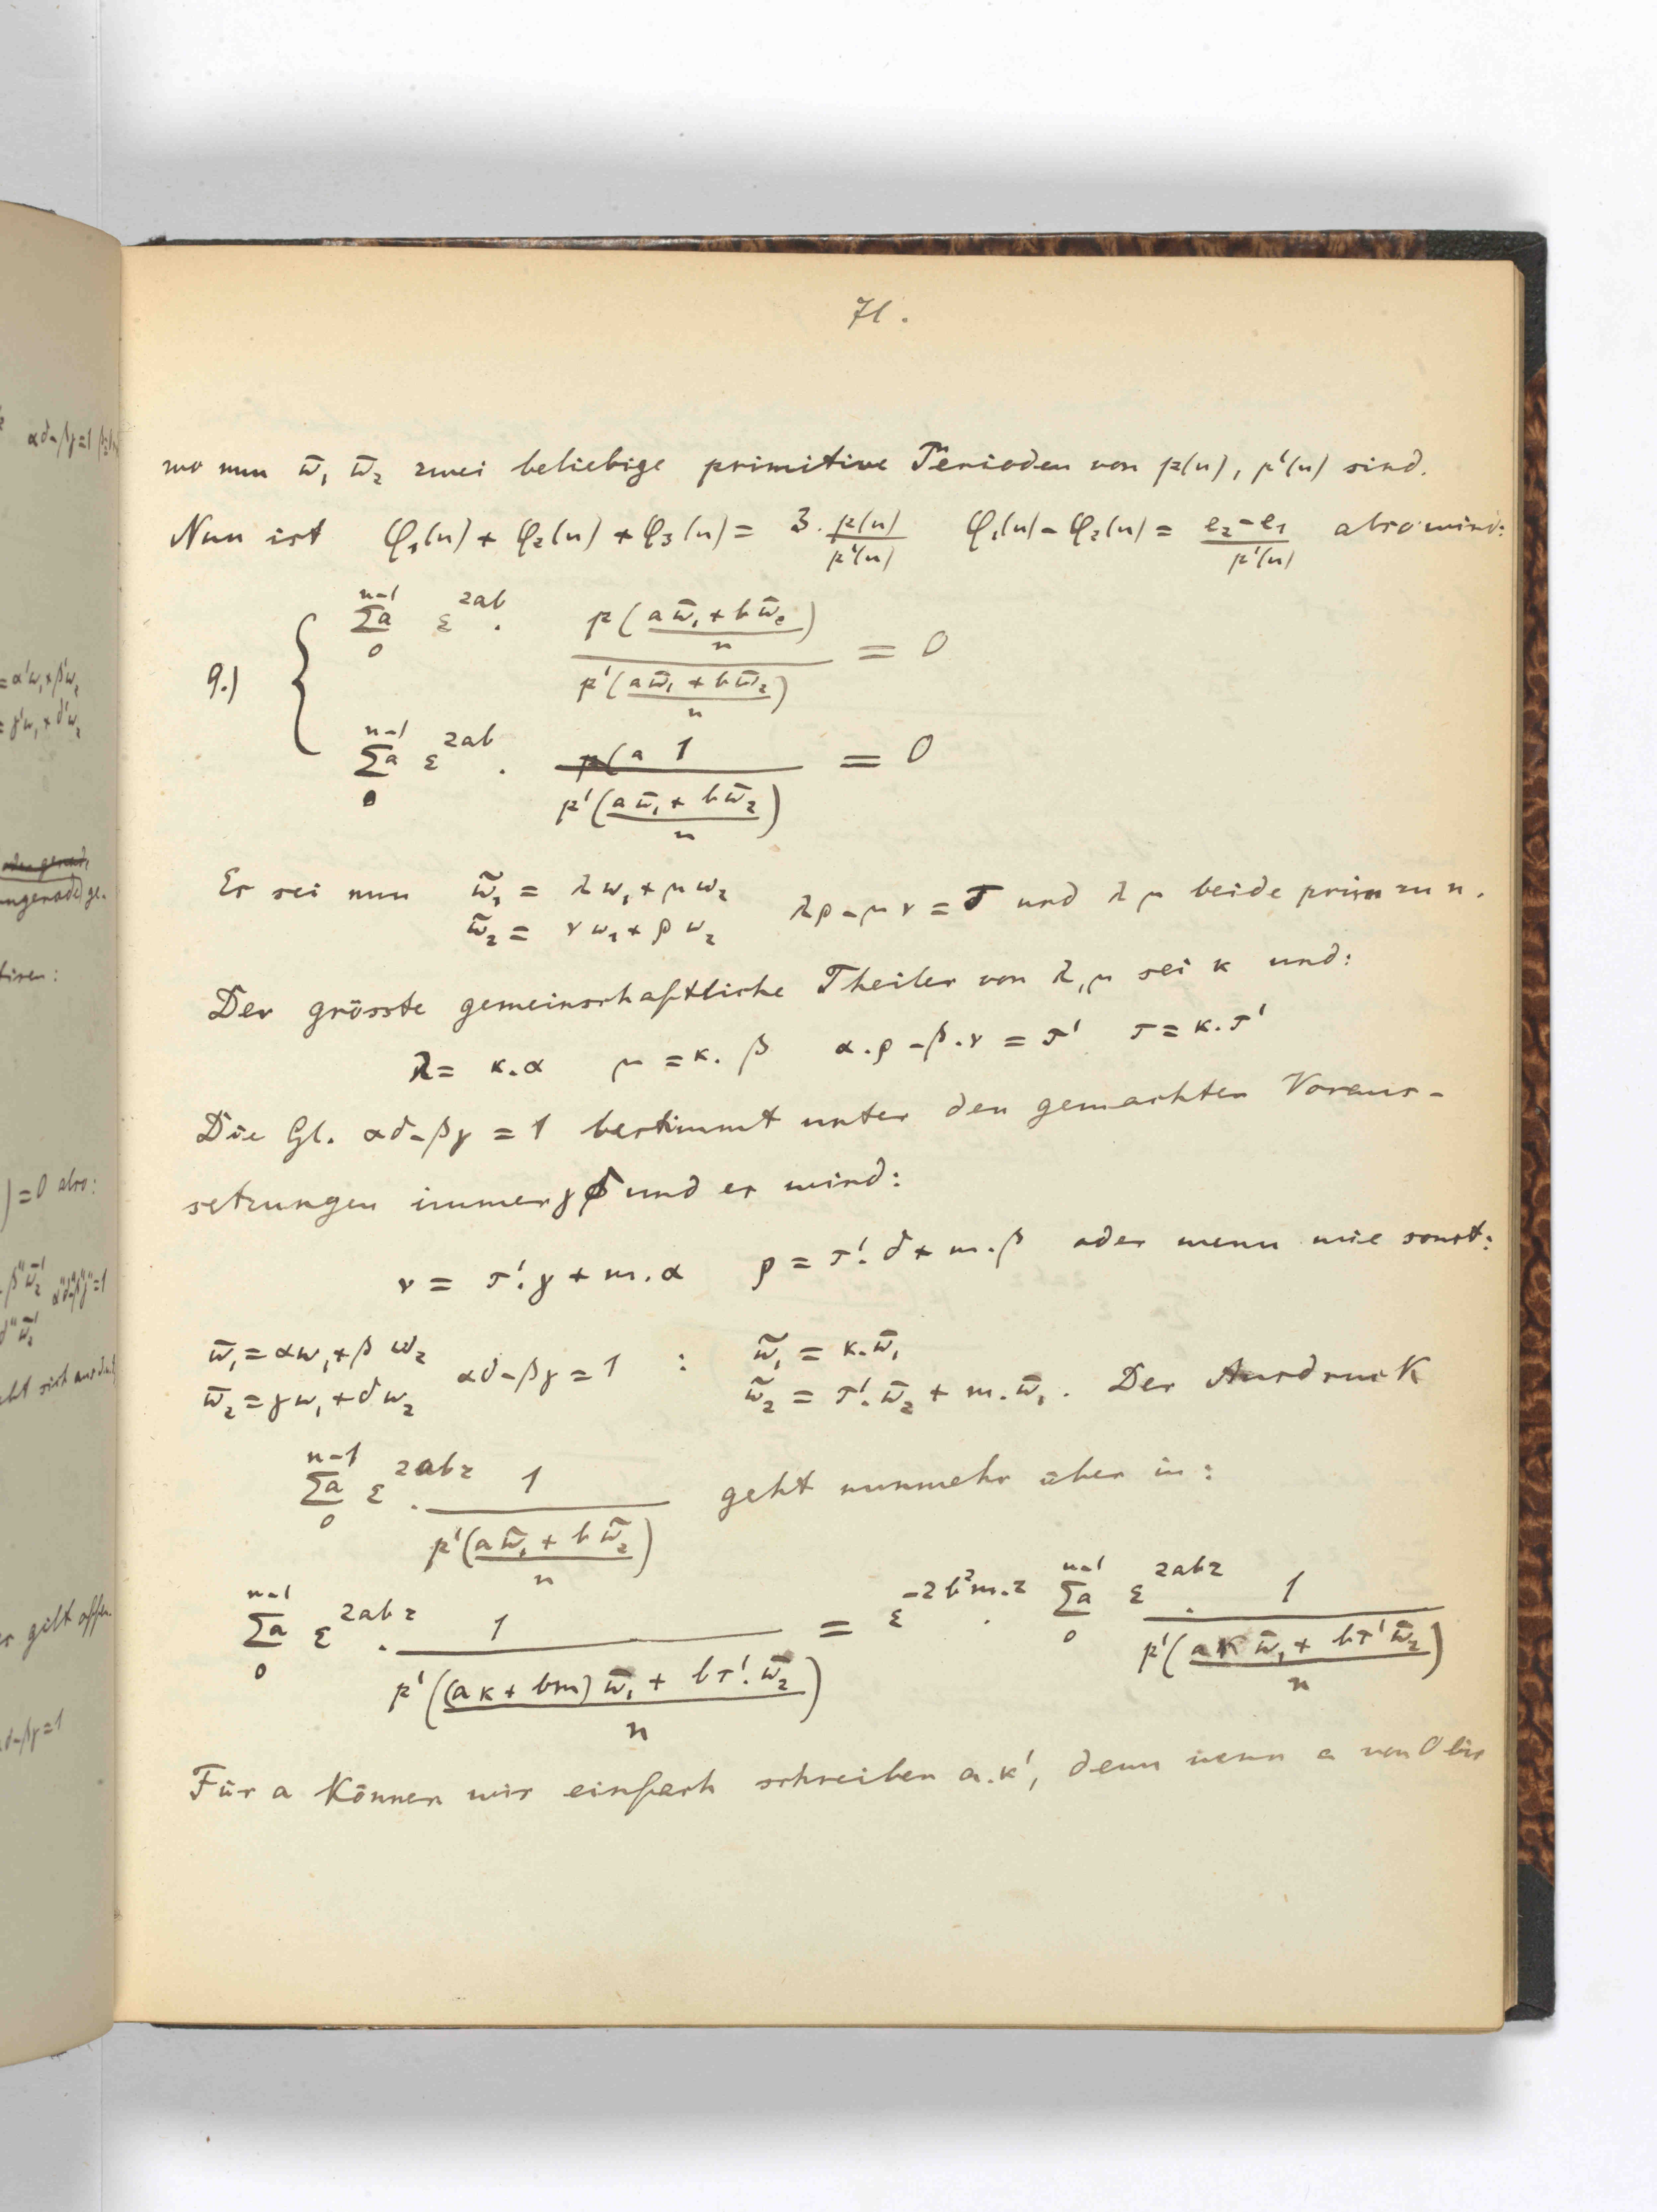 71.
wo nun ω̄₁ ω̄₂ zwei beliebige primitive Perioden von p(u), p'(u) sind.
Nun ist φ₁(u) + φ₂(u) + φ₃(u) = 3. p(u)/p'(u) φ₁(u) - φ₂(u) = (e₂-e₁)/p'(u) also wird:
9.) { Σa₀ⁿ⁻¹ ε²ᵃᵇ . p((aω̄₁ + bω̄₂)/n) / p'((aω̄₁ + bω̄₂)/n) = 0
Σa₀ⁿ⁻¹ ε²ᵃᵇ . 1 / p'((aω̄₁ + bω̄₂)/n) = 0
Es sei nun ω̃₁ = λω₁ + μω₂
ω̃₂ = νω₁ + ρω₂ λρ - μν = τ und λ μ beide prim zu n.
Der grösste gemeinschaftliche Theiler von λ, μ sei κ und:
λ = κ.α μ = κ.β α.ρ - β.ν = τ' τ = κ.τ'
Die Gl. αδ - βγ = 1 bestimmt unter den gemachten Voraus-
setzungen immer γ δ und es wird:
ν = τ'.γ + m.α ρ = τ'.δ + m.β oder wenn wie sonst:
ω̄₁ = αω₁ + βω₂ ω̃₁ = κ.ω̄₁
ω̄₂ = γω₁ + δω₂ αδ - βγ = 1 : ω̃₂ = τ'.ω̄₂ + m.ω̄₁. Der Ausdruck
Σa₀ⁿ⁻¹ ε^{2abτ} . 1 / p'((aω̃₁ + bω̃₂)/n) geht nunmehr über in:
Σa₀ⁿ⁻¹ ε^{2abτ} . 1 / p'(((aκ + bm)ω̄₁ + bτ'.ω̄₂)/n) = ε^{-2b²m.τ} . Σa₀ⁿ⁻¹ ε^{2abτ} . 1 / p'((aκω̄₁ + bτ'ω̄₂)/n)
Für a können wir einfach schreiben a.κ', denn wenn a von 0 bis
αδ-βγ=1
=α'ω₁+β'ω₂
=γ'ω₁+δ'ω₂
)=0 also: